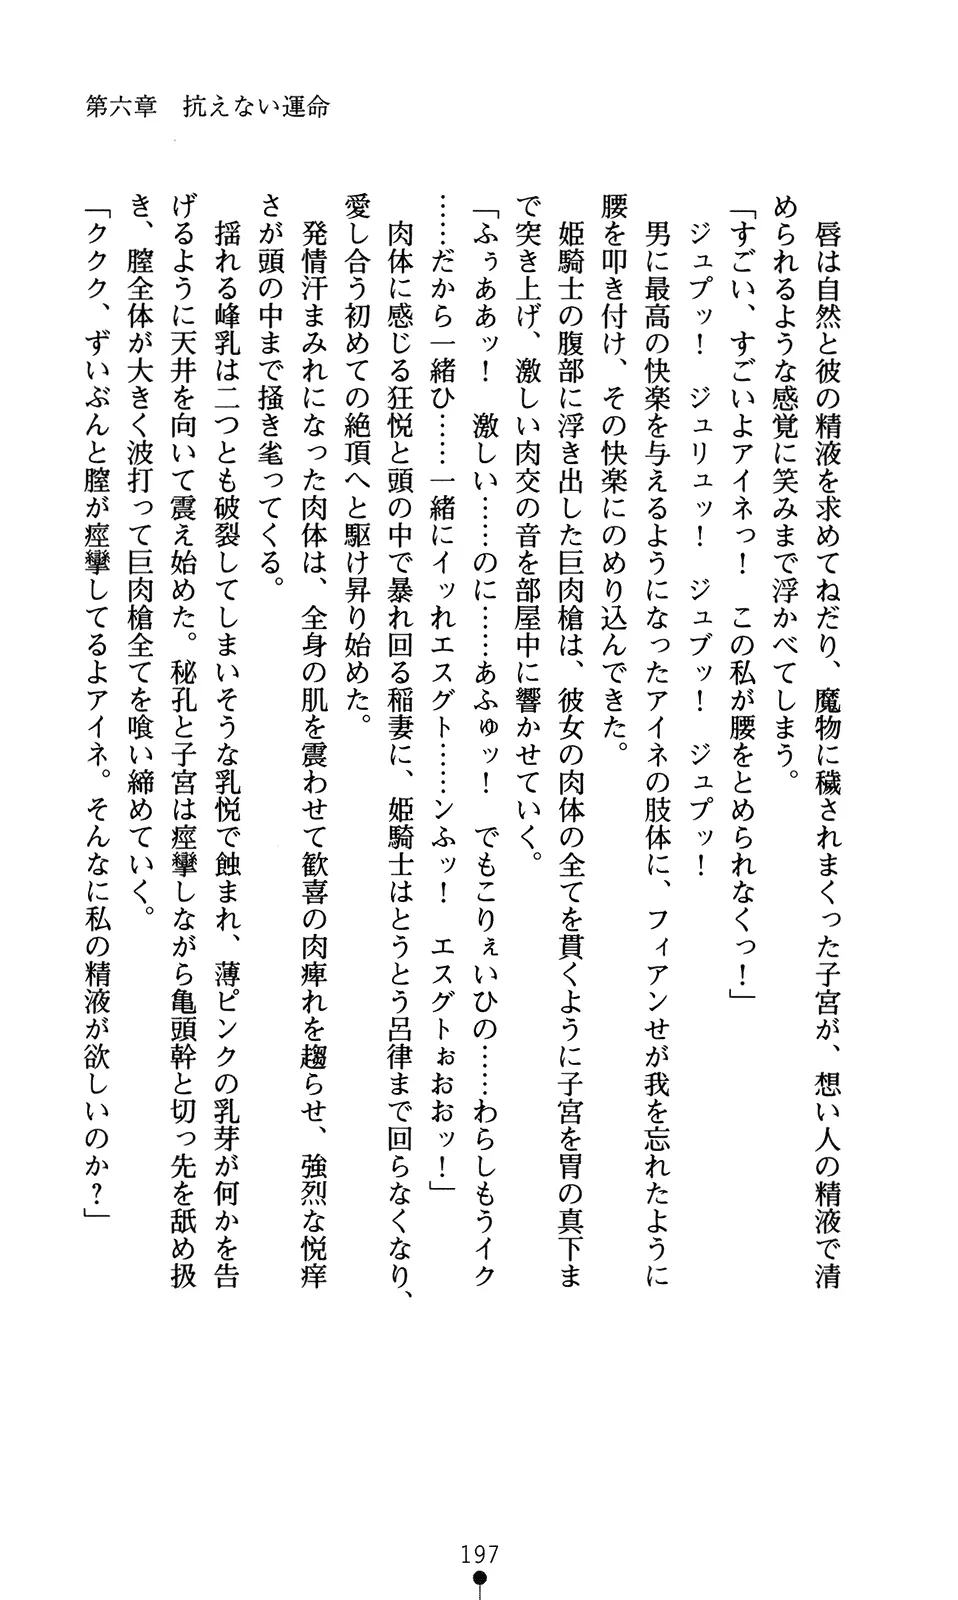 第六章　抗えない運命
唇は自然と彼の精液を求めてねだり、魔物に穢されまくった子宮が、想い人の精液で清
められるような感覚に笑みまで浮かべてしまう。
「すごい、すごいよアイネっ！　この私が腰をとめられなくっ！」
ジュプッ！　ジュリュッ！　ジュブッ！　ジュプッ！
男に最高の快楽を与えるようになったアイネの肢体に、フィアンせが我を忘れたように
腰を叩き付け、その快楽にのめり込んできた。
姫騎士の腹部に浮き出した巨肉槍は、彼女の肉体の全てを貫くように子宮を胃の真下ま
で突き上げ、激しい肉交の音を部屋中に響かせていく。
「ふぅああッ！　激しい……のに……あふゅッ！　でもこりぇいひの……わらしもうイク
……だから一緒ひ……一緒にイッれエスグト……ンふッ！　エスグトぉおおッ！」
肉体に感じる狂悦と頭の中で暴れ回る稲妻に、姫騎士はとうとう呂律まで回らなくなり、
愛し合う初めての絶頂へと駆け昇り始めた。
発情汗まみれになった肉体は、全身の肌を震わせて歓喜の肉痺れを趨らせ、強烈な悦痒
さが頭の中まで掻き毟ってくる。
揺れる峰乳は二つとも破裂してしまいそうな乳悦で蝕まれ、薄ピンクの乳芽が何かを告
げるように天井を向いて震え始めた。秘孔と子宮は痙攣しながら亀頭幹と切っ先を舐め扱
き、膣全体が大きく波打って巨肉槍全てを喰い締めていく。
「ククク、ずいぶんと膣が痙攣してるよアイネ。そんなに私の精液が欲しいのか？」
197